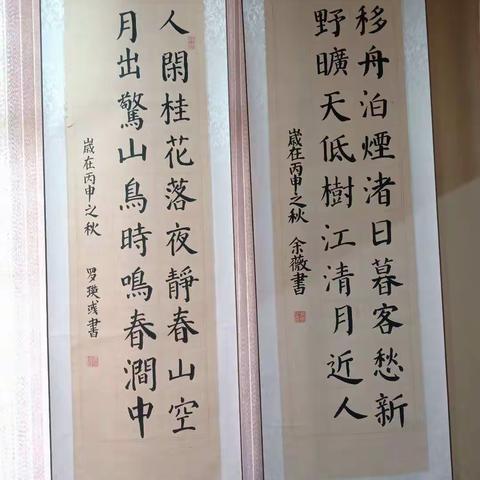 移舟泊煙渚日暮客愁新
野曠天低樹江清月近人
嵗在丙申之秋 余薇書
人閑桂花落夜靜春山空
月出驚山鳥時鳴春澗中
嵗在丙申之秋 罗瑛彧書